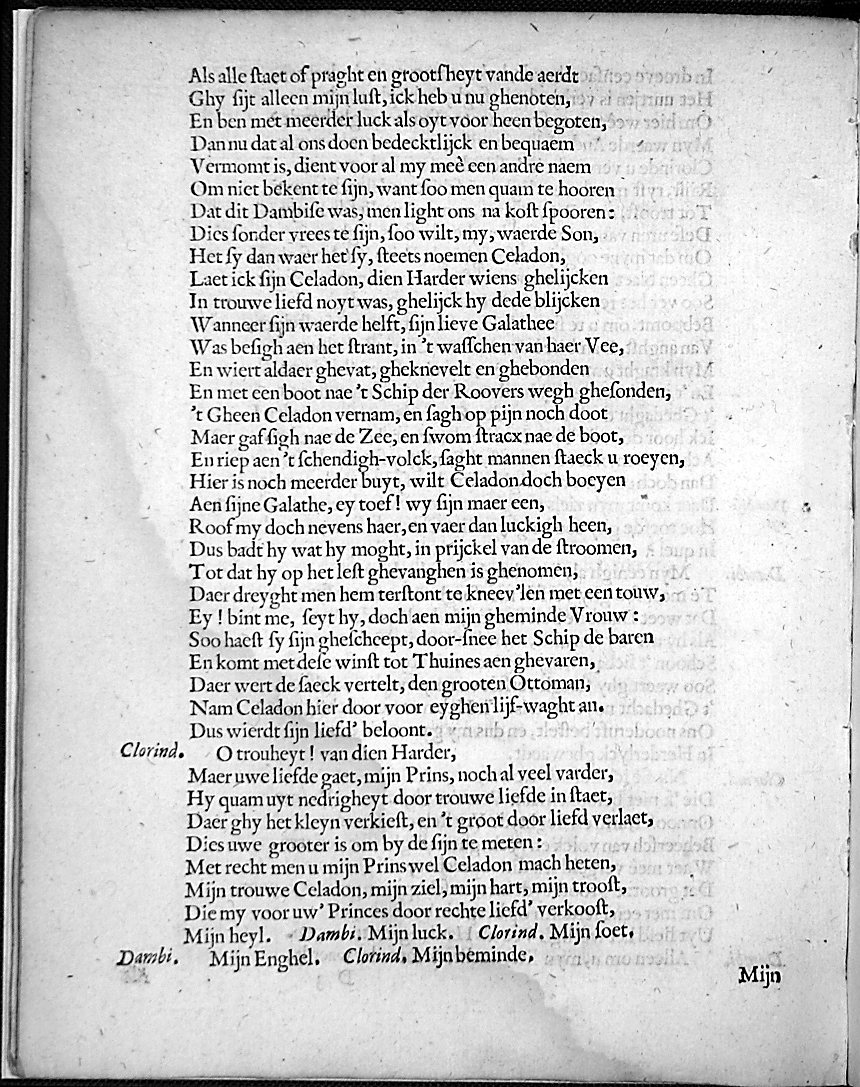 Als alle ſtaet of praght en grootſheyt vande aerdt
Ghy ſijt alleen mijn luſt, ick heb u nu ghenoten,
En ben met meerder luck als oyt voor heen begoten,
Dan nu dat al ons doen bedecktlijck en bequaem
Vermomt is, dient voor al my meê een andre naem
Om niet bekent te ſijn, want ſoo men quam te hooren
Dat dit Dambiſe was, men light ons na koſt ſpooren:
Dies ſonder vrees te ſijn, ſoo wilt, my, waerde Son,
Het ſy dan waer het ſy, ſteets noemen Celadon,
Laet ick ſijn Celadon, dien Harder wiens ghelijcken
In trouwe liefd noyt was, ghelijck hy dede blijcken
Wanneer ſijn waerde helft, ſijn lieve Galathee
Was beſigh aen het ſtrant, in 't waſſchen van haer Vee,
En wiert aldaer ghevat, gheknevelt en ghebonden
En met een boot nae 't Schip der Roovers wegh gheſonden,
't Gheen Celadon vernam, en ſagh op pijn noch doot
Maer gaf ſigh nae de Zee, en ſwom ſtracx nae de boot,
En riep aen 't ſchendigh-volck, ſaght mannen ſtaeck u roeyen,
Hier is noch meerder buyt, wilt Celadon doch boeyen
Aen ſijne Galathe, ey toef! wy ſijn maer een,
Roof my doch nevens haer, en vaer dan luckigh heen,
Dus badt hy wat hy moght, in prijckel van de ſtroomen,
Tot dat hy op het leſt ghevanghen is ghenomen,
Daer dreyght men hem terſtont te kneev'len met een touw,
Ey! bint me, ſeyt hy, doch aen mijn gheminde Vrouw:
Soo haeſt ſy ſijn gheſcheept, door-ſnee het Schip de baren
En komt met deſe winſt tot Thuines aen ghevaren,
Daer wert de ſaeck vertelt, den grooten Ottoman,
Nam Celadon hier door voor eyghen lijf-waght an.
Dus wierdt ſijn liefd' beloont.
Clorind. O trouheyt! van dien Harder,
Maer uwe liefde gaet, mijn Prins, noch al veel varder,
Hy quam uyt nedrigheyt door trouwe liefde in ſtaet,
Daer ghy het kleyn verkieſt, en 't groot door liefd verlaet,
Dies uwe grooter is om by de ſijn te meten:
Met recht men u mijn Prins wel Celadon mach heten,
Mijn trouwe Celadon, mijn ziel, mijn hart, mijn trooſt,
Die my voor uw' Princes door rechte liefd' verkooſt,
Mijn heyl. Dambi. Mijn luck. Clorind. Mijn ſoet.
Dambi. Mijn Enghel. Clorind. Mijn beminde.
Mijn